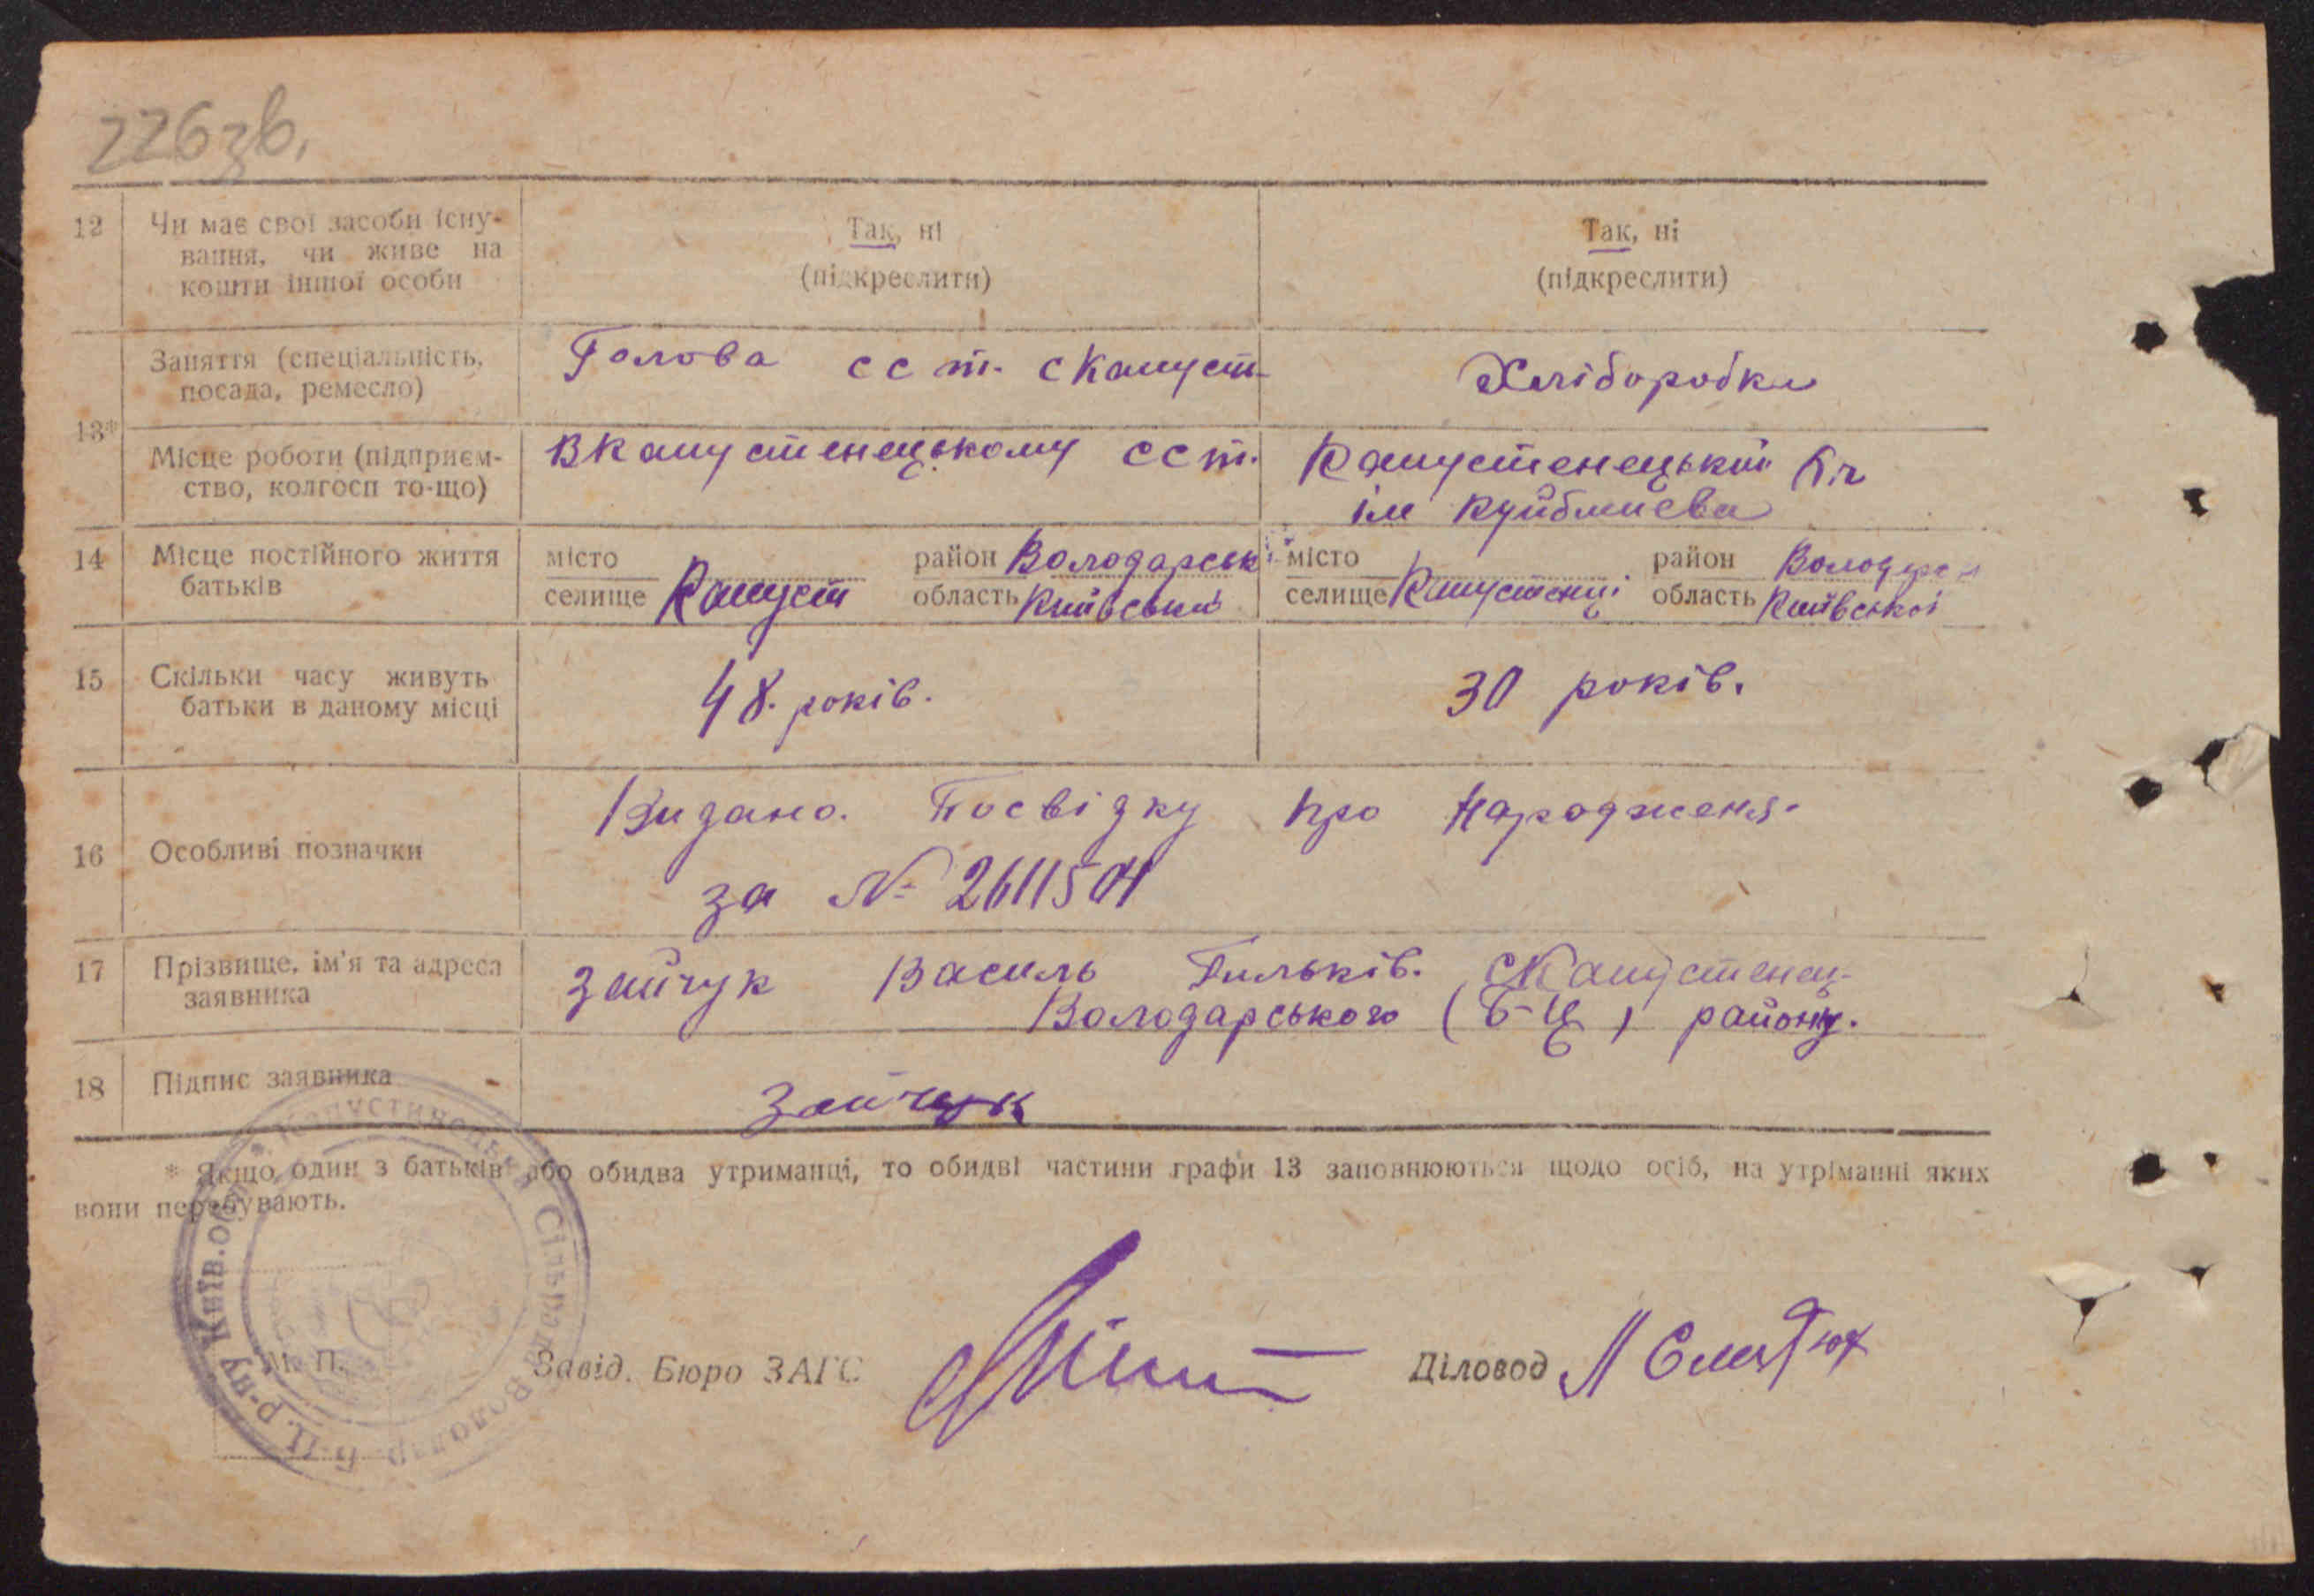 226зв.
12 Чи має свої засоби існу- Так, ні Так, ні
вання, чи живе на
кошти іншої особи (підкреслити) (підкреслити)
Заняття (спеціальність, Голова сст. с Капуст Хліборобка
посада, ремесло)
13*
Місце роботи (підприєм- В Капустенецькому сст. Капустенецький
ство, колгосп то-що) ім Куйбишева
14 Місце постійного життя місто район Володарськ місто район
батьків селище Капуст область Київський селище Капустенці область Київської
15 Скільки часу живуть 48. років. 30 років.
батьки в даному місці
Видано. Посвідку про народженя.
16 Особливі позначки
за №
17 Прізвище, ім'я та адреса Зайчук Василь Тильків. с Капустенец-
заявника Володарського (Б-Ц) району.
18 Підпис заявника Зайчук
* Якщо один з батьків або обидва утриманці, то обидві частини графи 13 заповнюються щодо осіб, на утріманні яких
вони перебувають.
Капустинецька Сільрада Володар Б-Ц. р-ну Київ.обл.
М. П.
Завід. Бюро ЗАГС Діловод